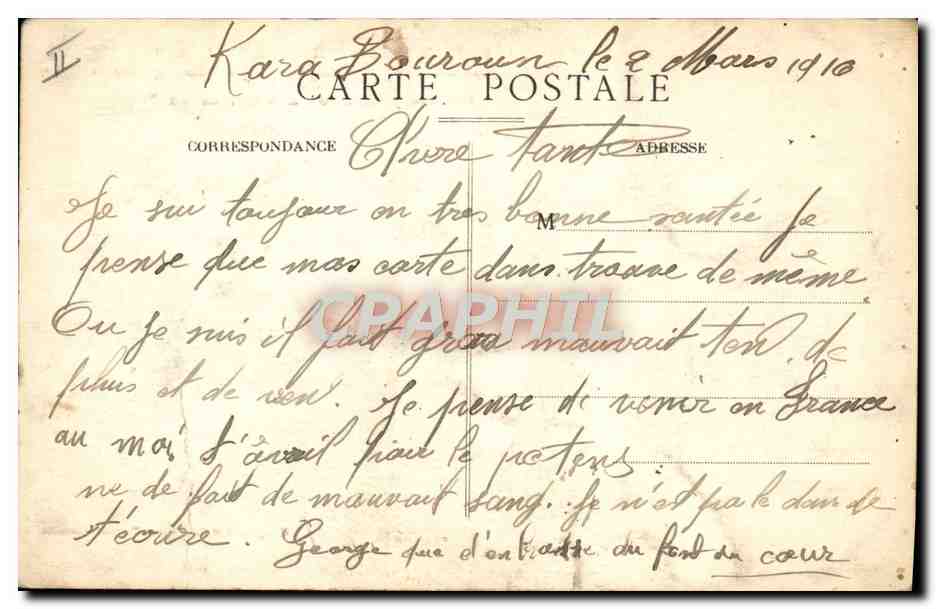 II
Kara Bouroun le 2 Mars 1910
CARTE POSTALE
CORRESPONDANCE
ADRESSE
Chere tante
Je sui toujour en tres bonne santée je
M
pense que mas carte dans trouve de même
CPARHIL
Ou Je suis il fait grand mauvait ten. de
pluis et de ven. Je pense di venir en France
au moi d'avril pair le
ne de fait de mauvait sang. Je n'est pa le dan de
t'écrire. George que d'embrasse au font du cœur